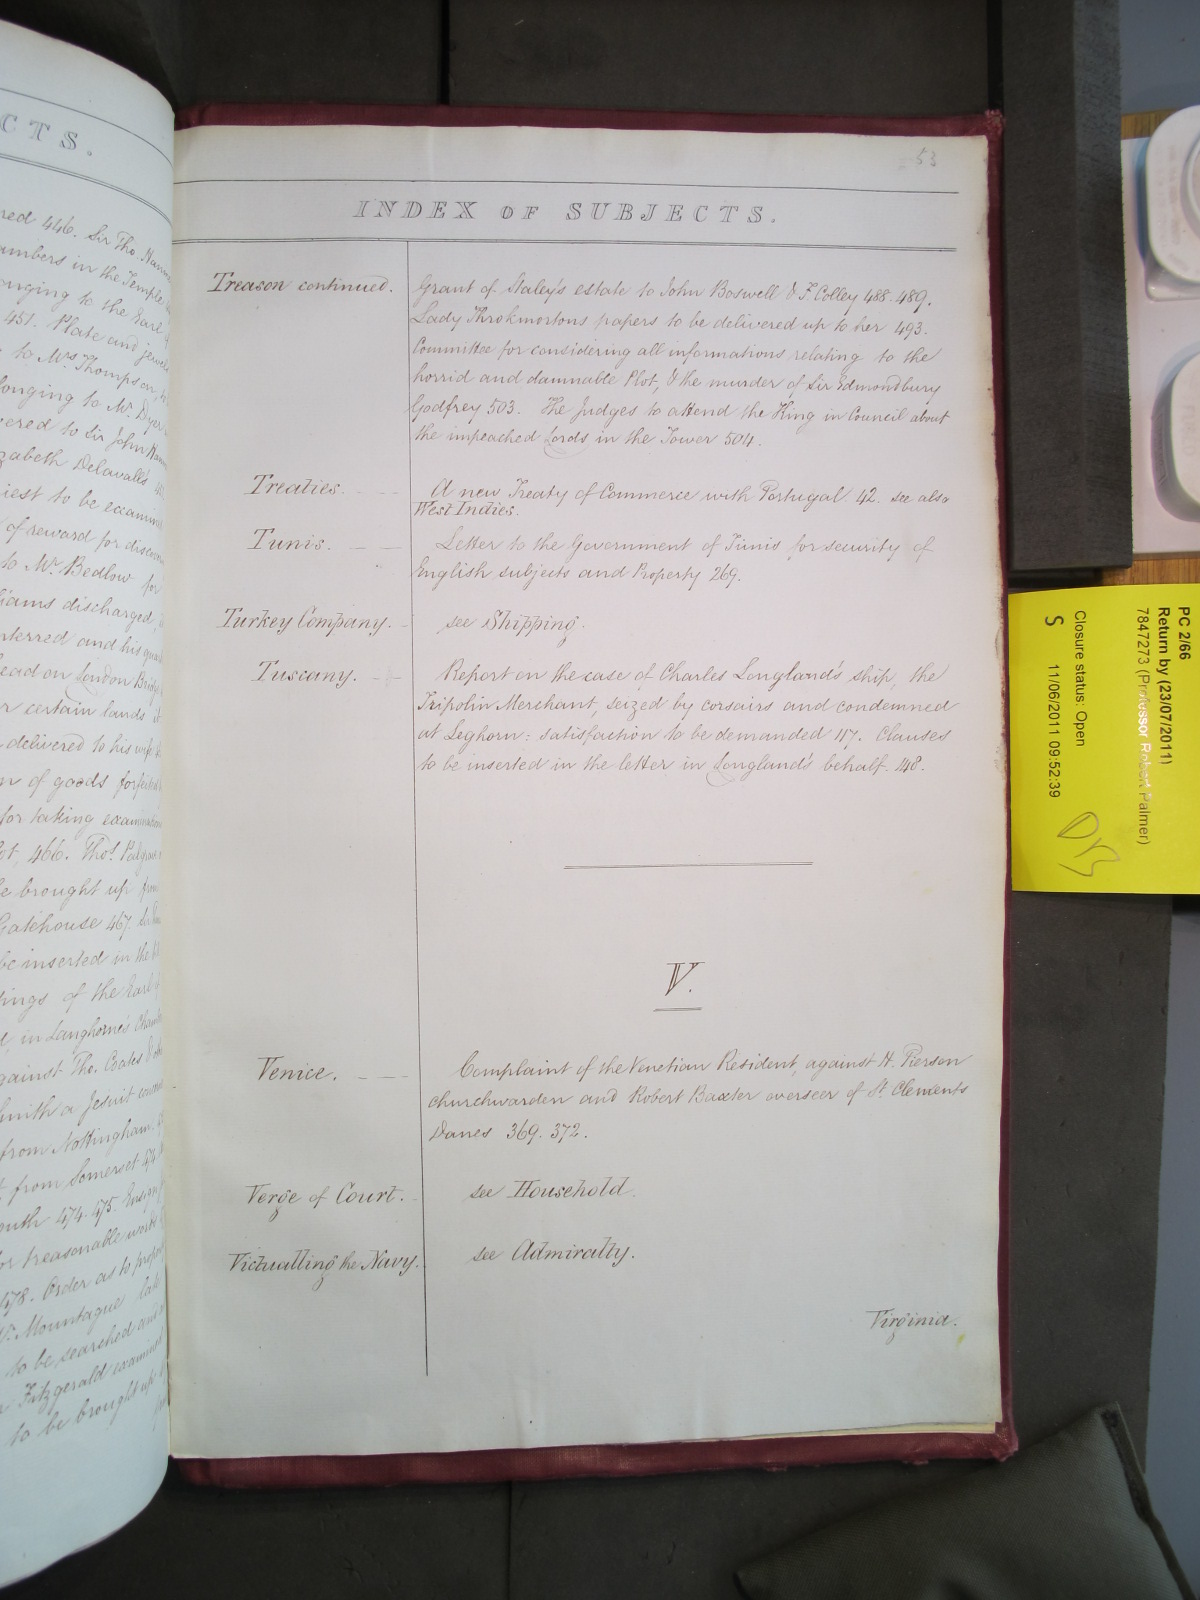 CTS.
red 446. Sir Tho.
umbers in the Temple
onging to the Earl
451. Plate and jewels
to Mrs Thompson
longing to Mr Dyer
ered to Sir John
zabeth Delavall's
iest to be examin
of reward for discov
to Mr Bedlow for
iams discharged,
nterred and his
ead on London Bridge
r certain lands
delivered to his wife
n of goods forfeited
for taking examination
ot, 466. Thos
e brought up from
Gatehouse 467.
be inserted in the
tings of the Earl
in Langhorne's Cham
gainst Tho. Coates &
Smith a Jesuit
from Nottingham.
from Somerset 474
outh 474. 475.
or treasonable words
478. Order as to
Mountague late
to be searched and
Fitzgerald examined
to be brought up
53
INDEX OF SUBJECTS.
Treason continued. Grant of Staley's estate to John Boswell & F. Colley 488. 489.
Lady Throkmortons papers to be delivered up to her 493.
Committee for considering all informations relating to the
horrid and damnable Plot, & the murder of Sir Edmondbury
Godfrey 503. The Judges to attend the King in Council about
the impeached Lords in the Tower 504.
Treaties. A new Treaty of Commerce with Portugal 42. see also
West Indies.
Tunis. Letter to the Government of Tunis for security of
English subjects and Property 269.
Turkey Company. see Shipping.
Tuscany. Report on the case of Charles Longland's ship, the
Tripolin Merchant, seized by corsairs and condemned
at Leghorn: satisfaction to be demanded 117. Clauses
to be inserted in the letter in Longland's behalf. 148.
V.
Venice. Complaint of the Venetian Resident, against H. Pierson
churchwarden and Robert Baxter overseer of St. Clements
Danes 369. 372.
Verge of Court. see Household.
Victualling the Navy. see Admiralty.
Virginia.
PC 2/66
Return by (23/07/2011)
7847273 (Professor Robert Palmer)
Closure status: Open
S 11/06/2011 09:52:39
DB